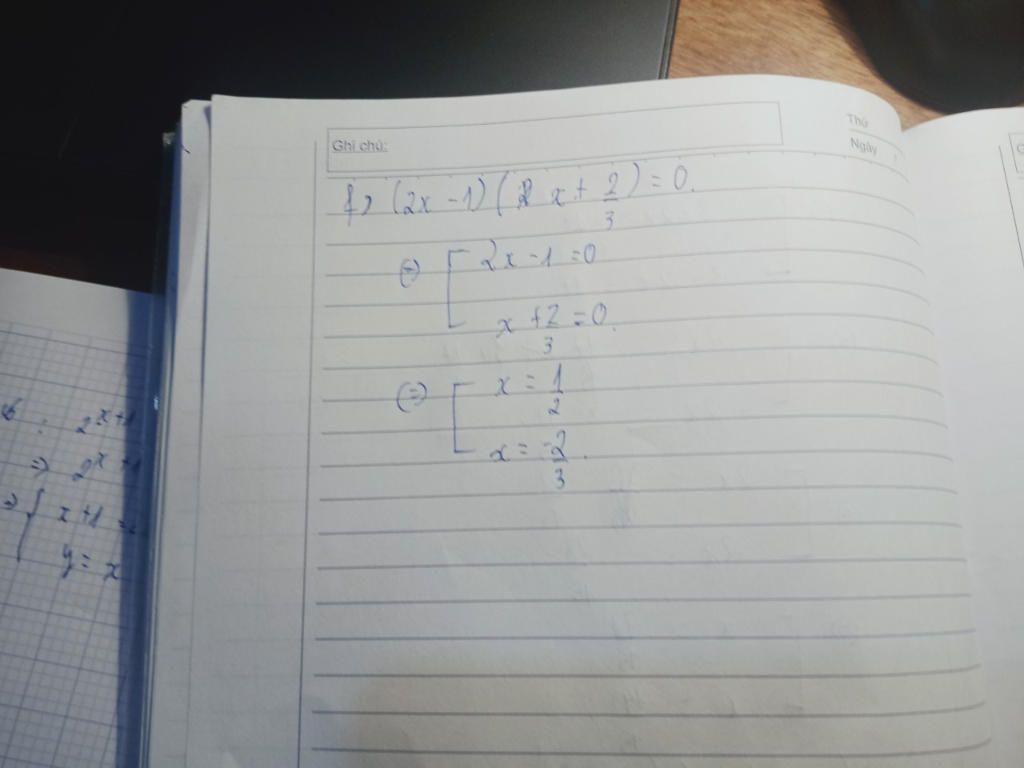 Ghi chú:
Thứ
Ngày
f, (2x - 1) (x + 2/3) = 0.
⇔ [ 2x - 1 = 0
x + 2/3 = 0.
⇔ [ x = 1/2
x = -2/3.
: 2^x+1
⇒ 2^x
⇒ { x + 1 =
y = x